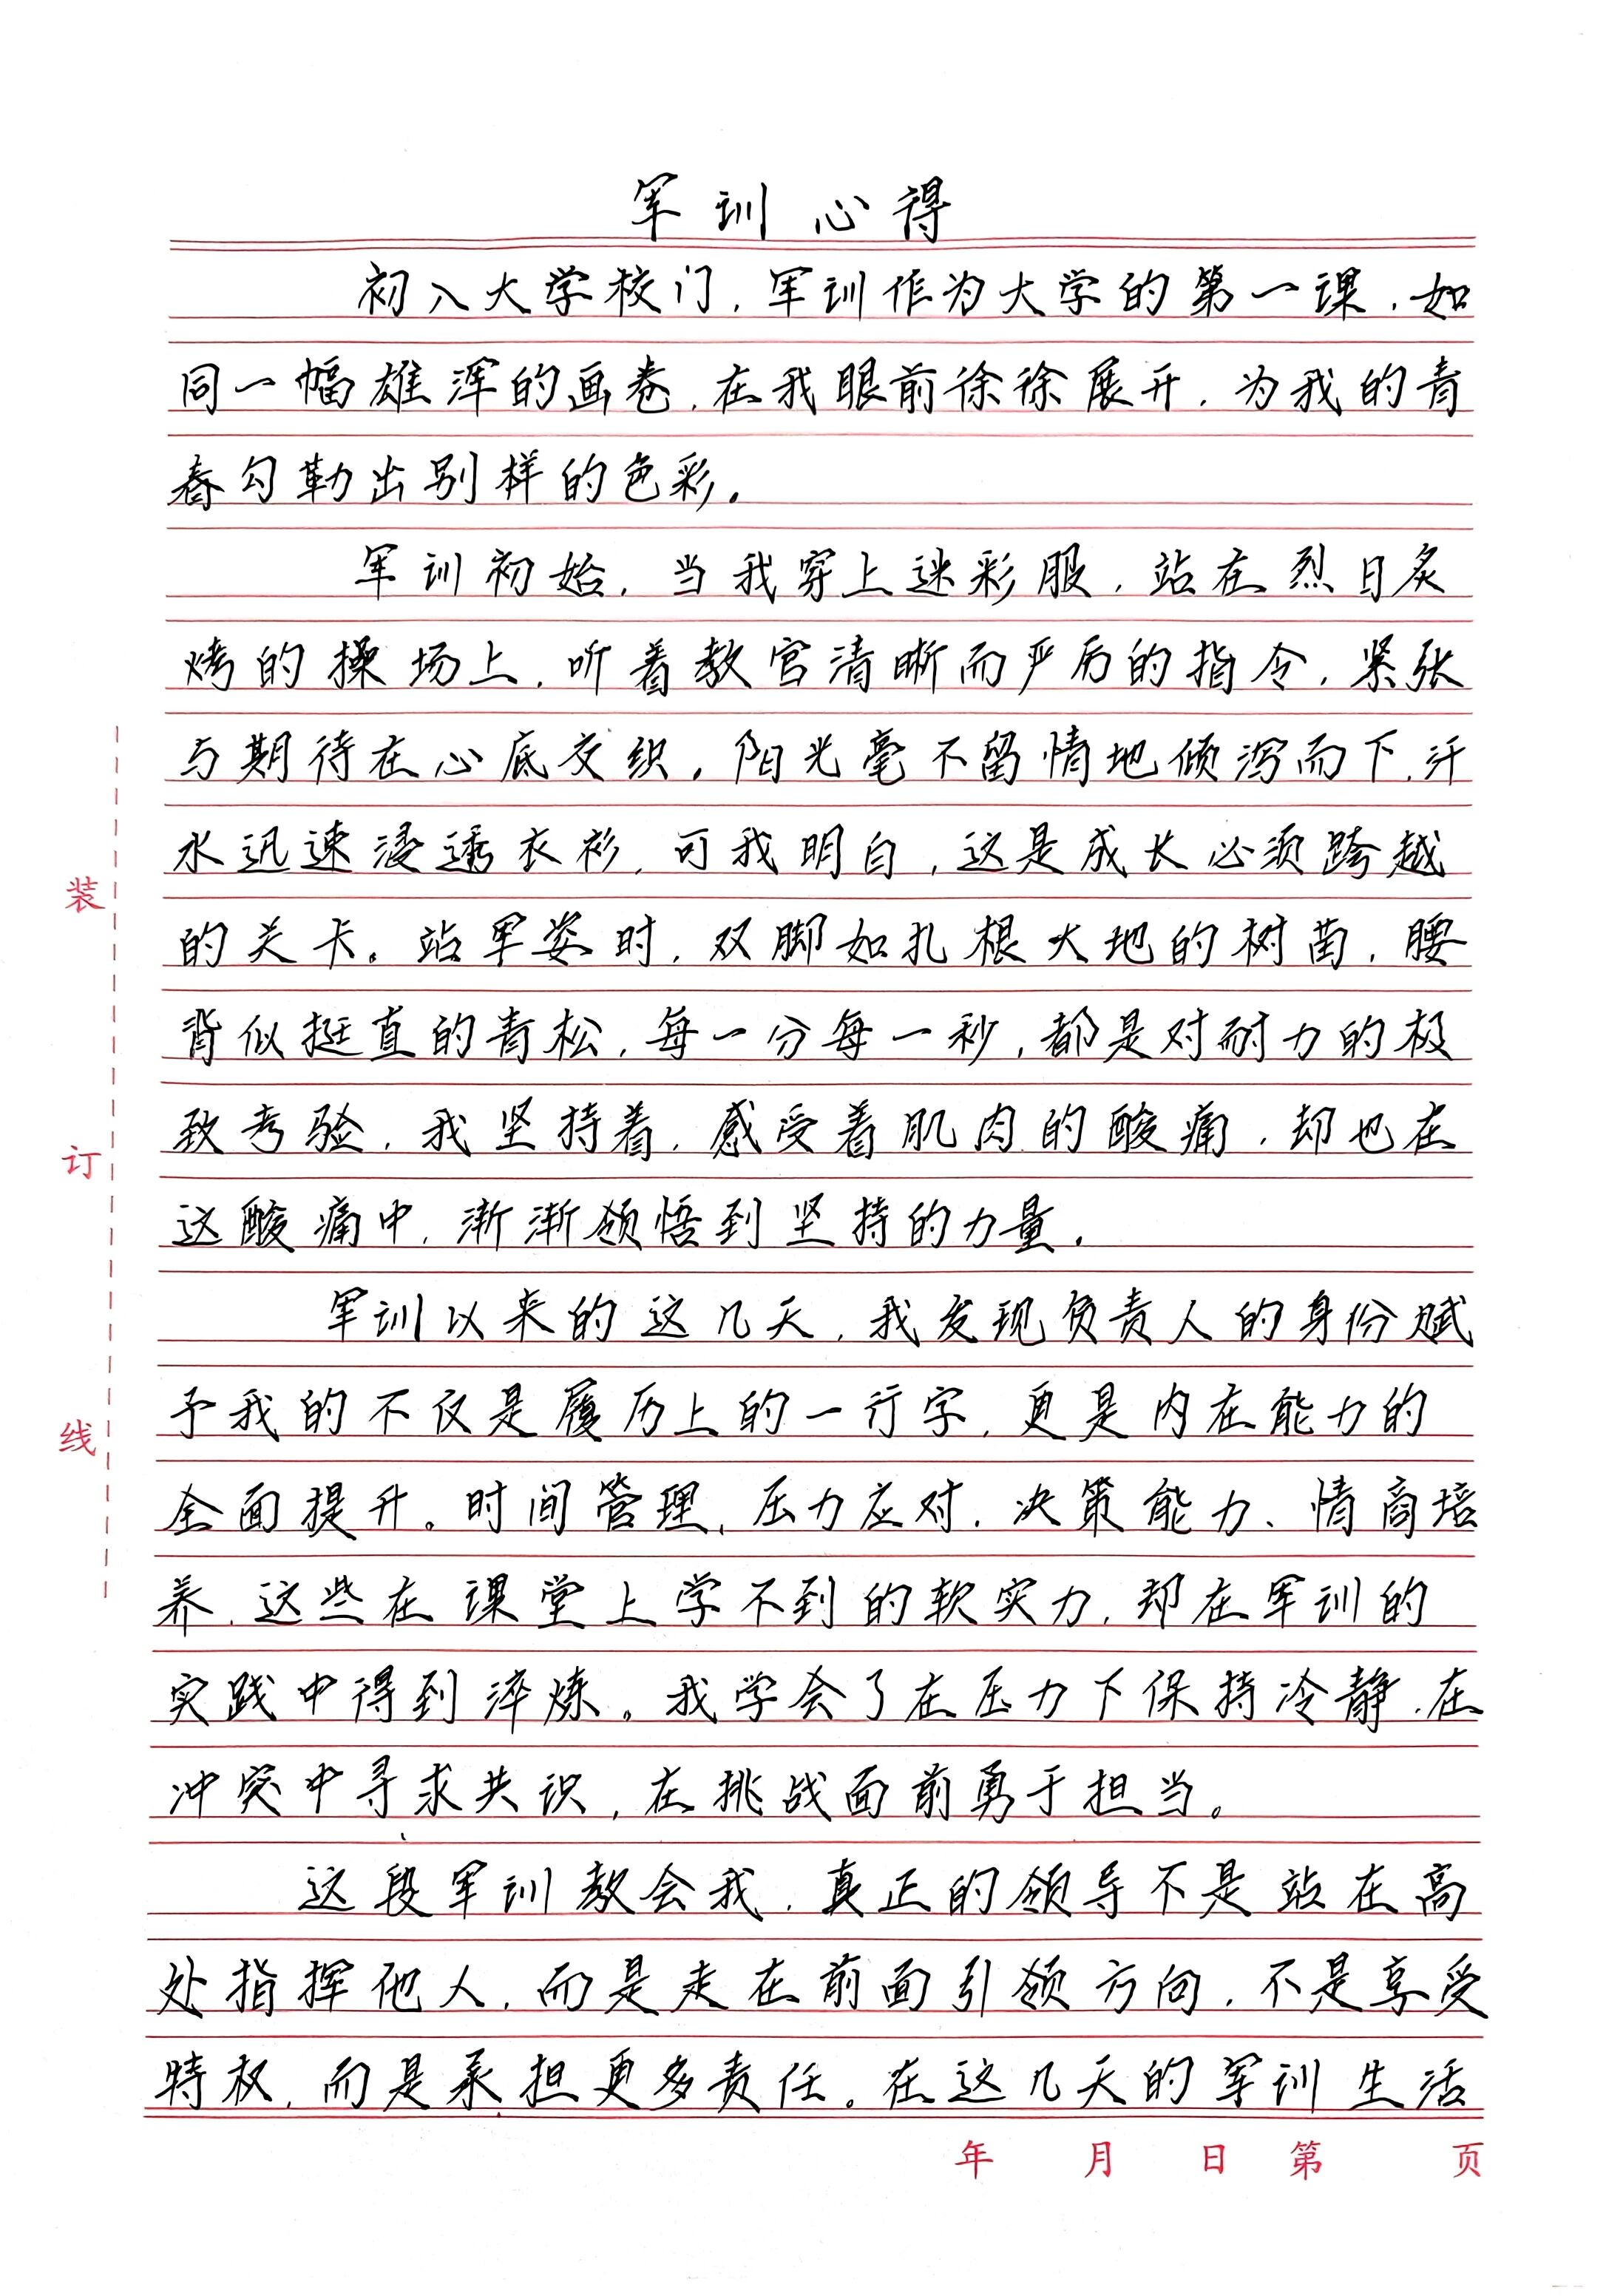 军训心得
初入大学校门,军训作为大学的第一课,如
同一幅雄浑的画卷,在我眼前徐徐展开,为我的青
春勾勒出别样的色彩。
军训初始,当我穿上迷彩服,站在烈日炙
烤的操场上,听着教官清晰而严厉的指令,紧张
与期待在心底交织。阳光毫不留情地倾泻而下,汗
水迅速浸透衣衫,可我明白,这是成长必须跨越
的关卡。站军姿时,双脚如扎根大地的树苗,腰
背似挺直的青松,每一分每一秒,都是对耐力的极
致考验,我坚持着,感受着肌肉的酸痛,却也在
这酸痛中,渐渐领悟到坚持的力量。
军训以来的这几天,我发现负责人的身份赋
予我的不仅是履历上的一行字,更是内在能力的
全面提升。时间管理、压力应对、决策能力、情商培
养,这些在课堂上学不到的软实力,却在军训的
实践中得到淬炼。我学会了在压力下保持冷静,在
冲突中寻求共识,在挑战面前勇于担当。
这段军训教会我,真正的领导不是站在高
处指挥他人,而是走在前面引领方向,不是享受
特权,而是承担更多责任。在这几天的军训生活
装
订
线
年 月 日 第 页